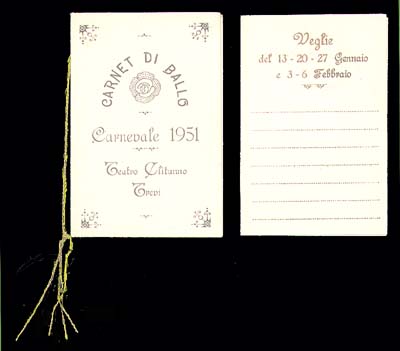 CARNET DI BALLO
Carnevale 1951
Teatro Clitunno
Trevi
Veglie
del 13 - 20 - 27 Gennaio
e 3 - 6 Febbraio